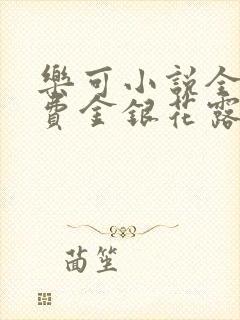 樂可小說全
費金銀花露
茵笙